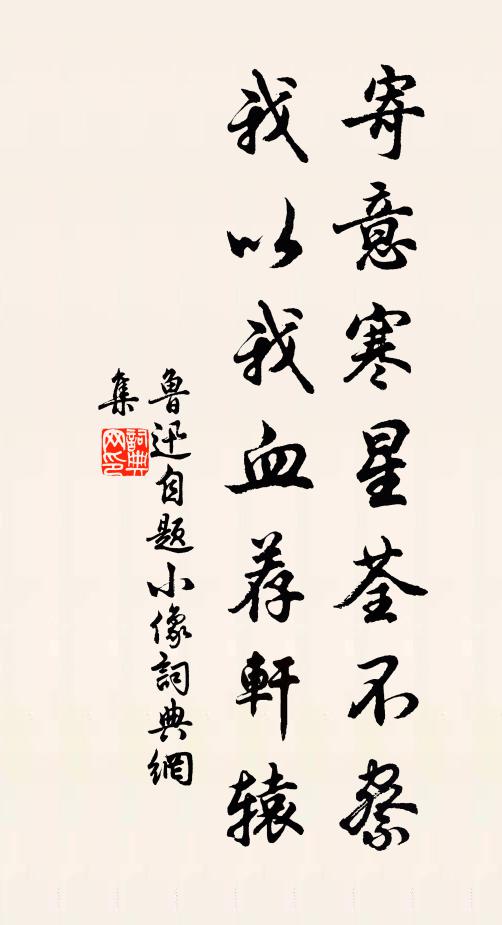 寄意寒星荃不察
我以我血荐軒辕
鲁迅自题小像詞典網
集
詞典
网印